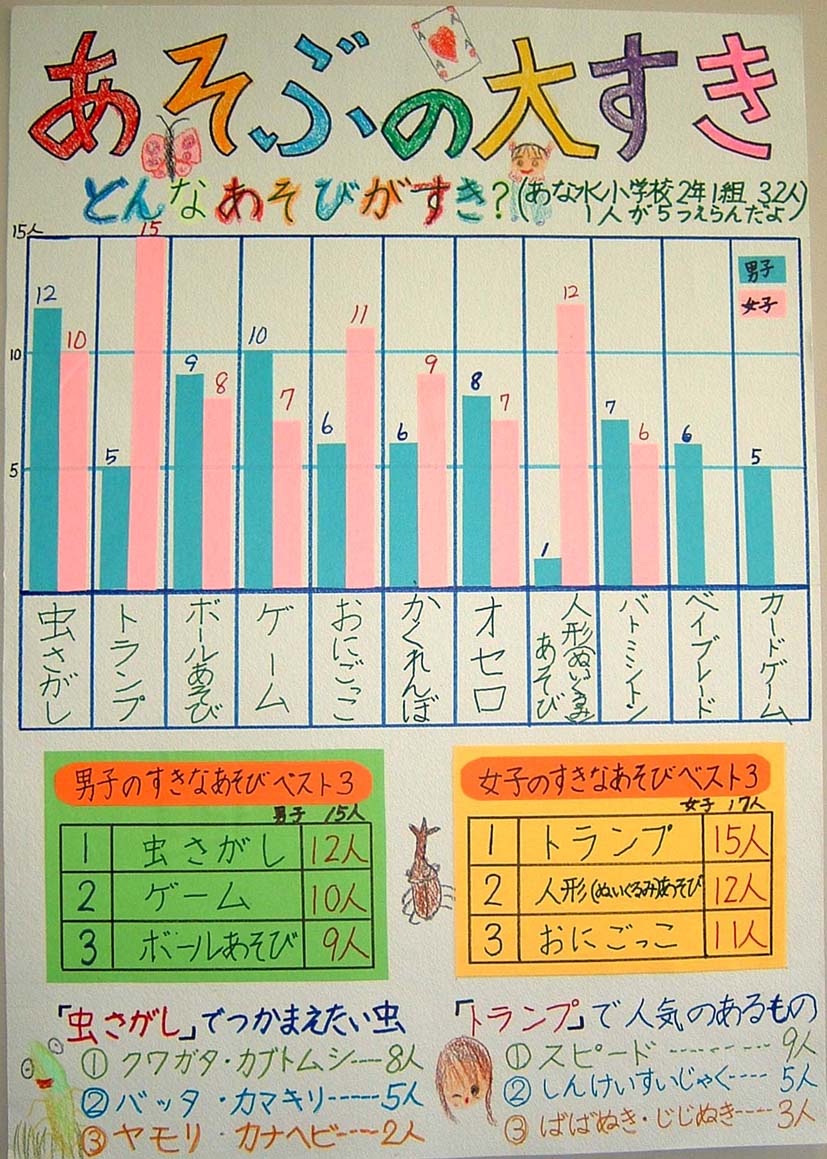 あそぶの大すき
どんなあそびがすき?(あな水小学校2年1組 32人)
1人が5つえらんだよ
15人
10
5
男子
女子
12
10
5
15
9
8
10
7
6
11
6
9
8
7
1
12
7
6
6
5
虫さがし
トランプ
ボールあそび
ゲーム
おにごっこ
かくれんぼ
オセロ
人形(ぬいぐるみ)あそび
バトミントン
ベイブレード
カードゲーム
男子のすきなあそびベスト3
男子 15人
1 虫さがし 12人
2 ゲーム 10人
3 ボールあそび 9人
女子のすきなあそびベスト3
女子 17人
1 トランプ 15人
2 人形(ぬいぐるみ)あそび 12人
3 おにごっこ 11人
「虫さがし」でつかまえたい虫
① クワガタ・カブトムシ---8人
② バッタ・カマキリ-----5人
③ ヤモリ・カナヘビ----2人
「トランプ」で人気のあるもの
① スピード---------9人
② しんけいすいじゃく---- 5人
③ ばばぬき・じじぬき---- 3人